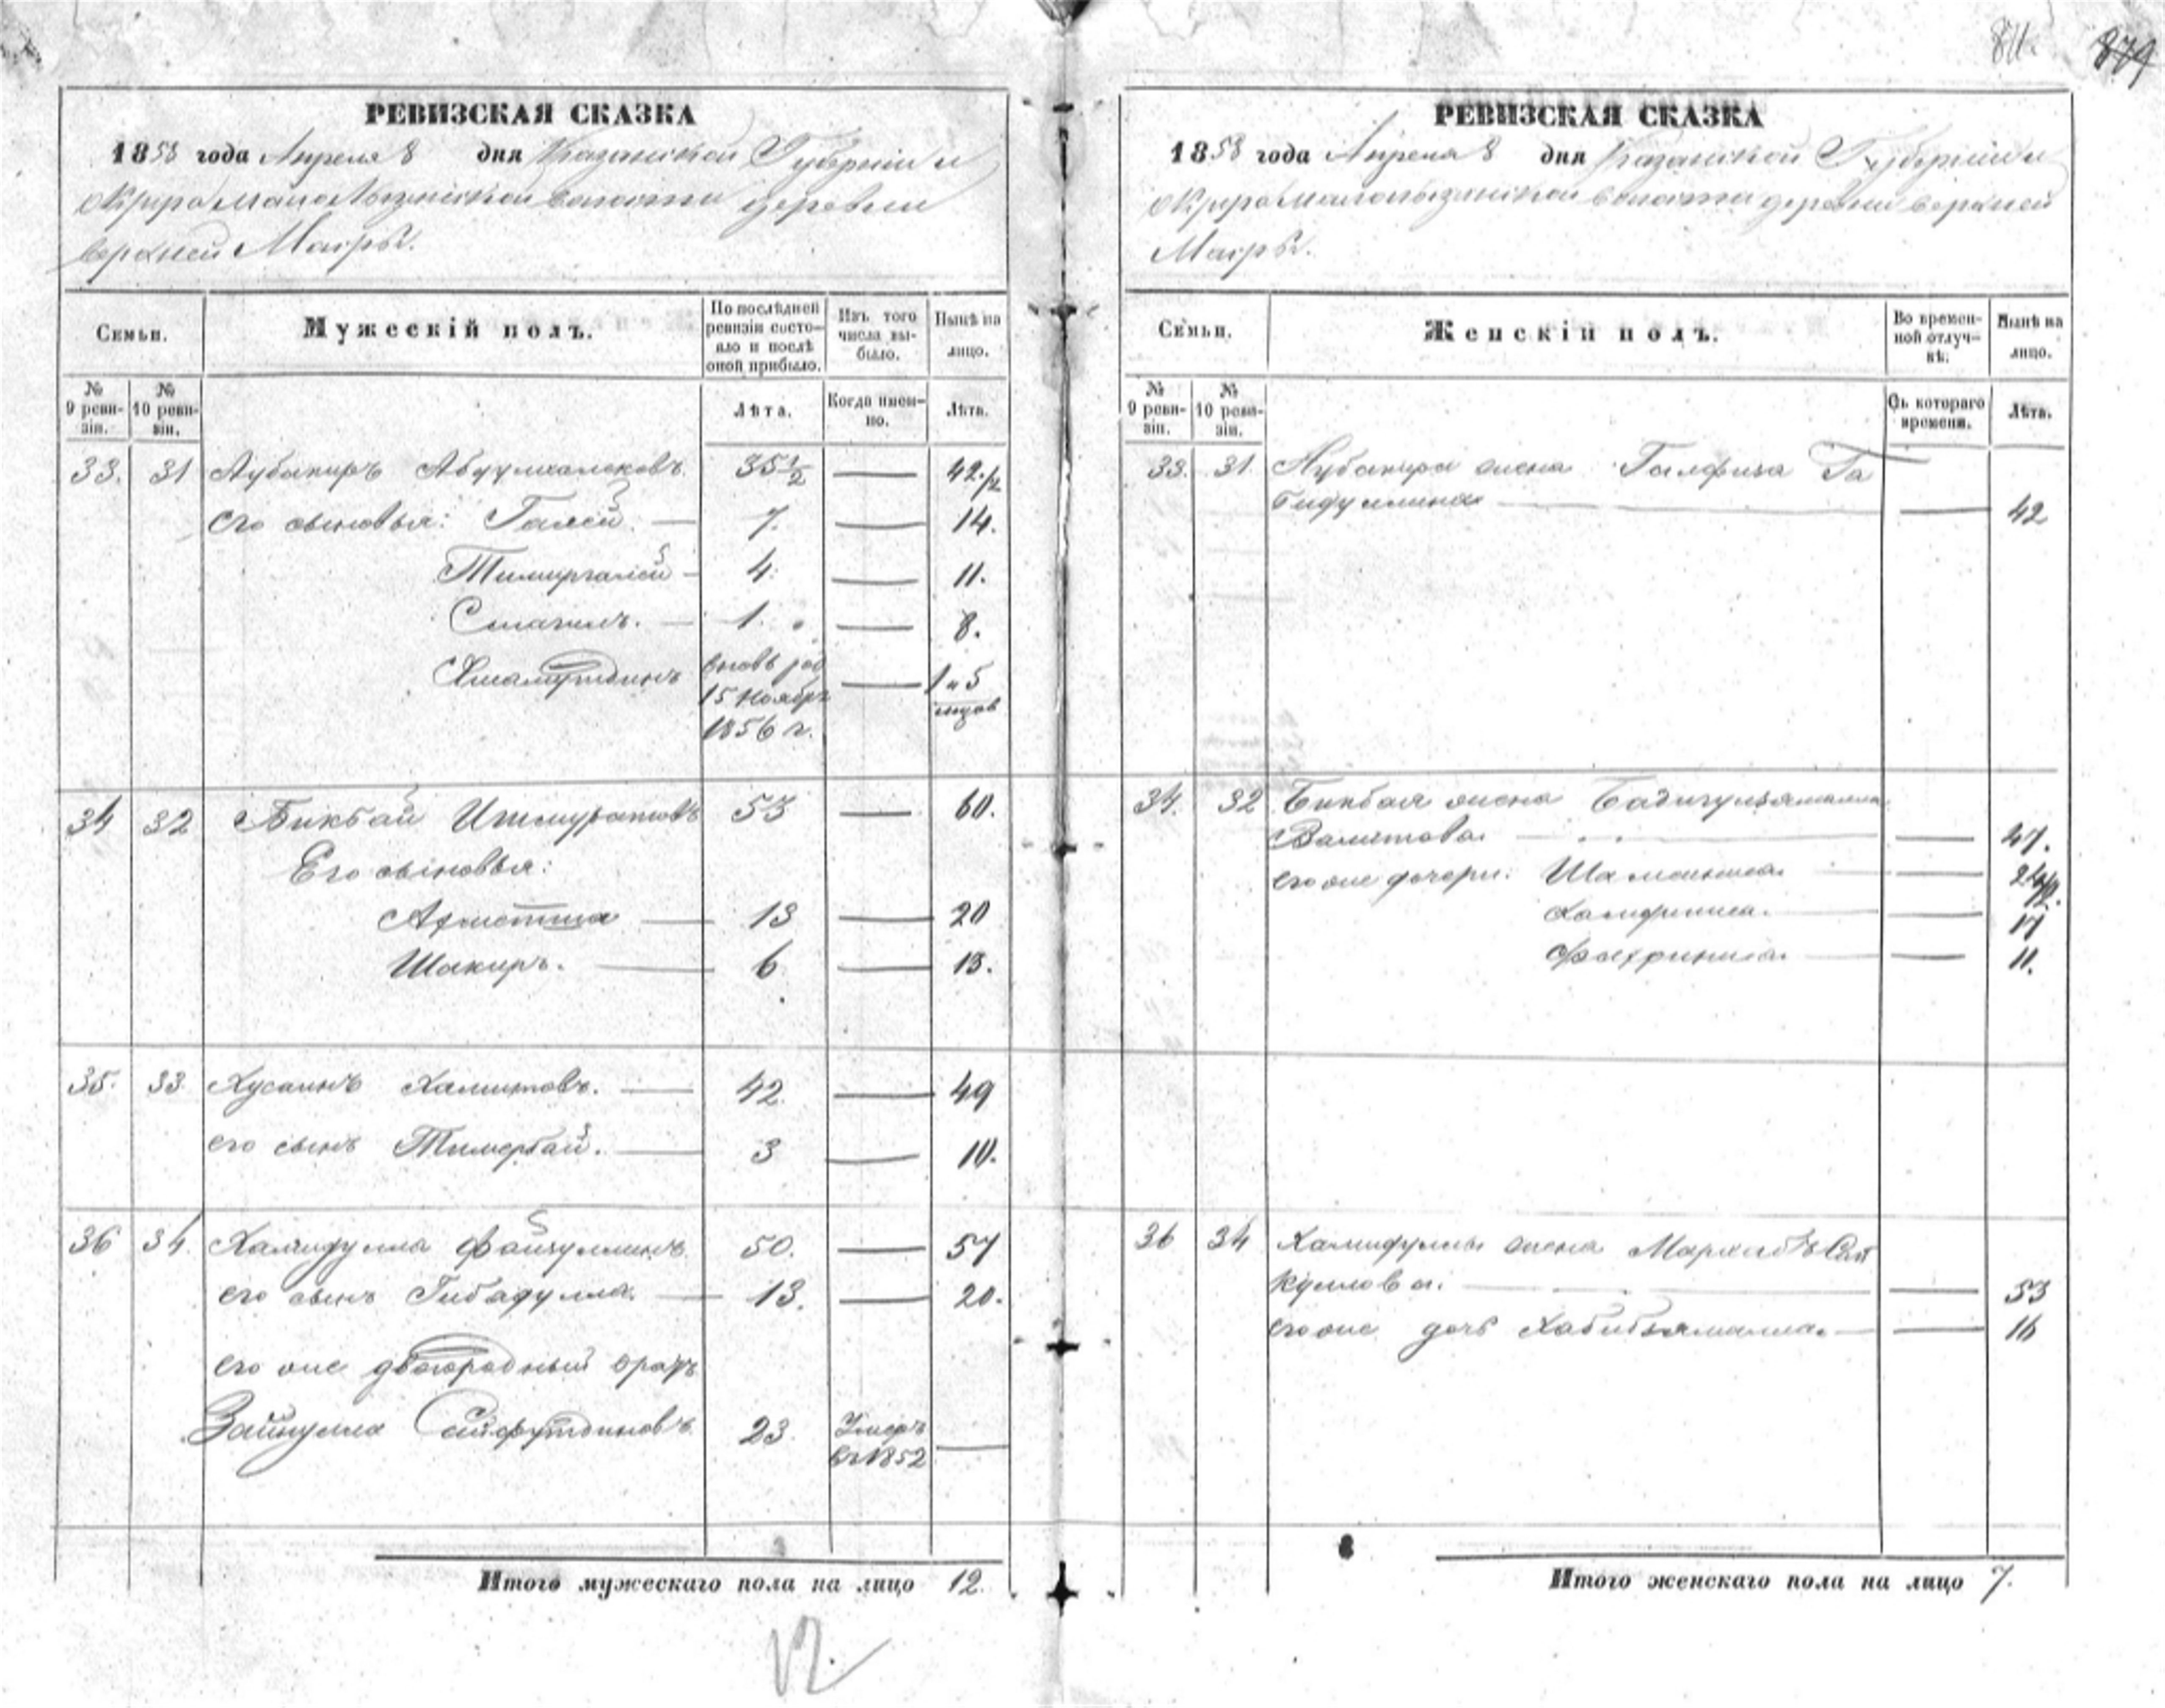 811. 879
РЕВИЗСКАЯ СКАЗКА
1858 года Апреля 8 дня Казанской Губерніи и
округа волости деревни
верхней Масры.
Семьи.
Мужескій полъ.
По послѣдней ревизіи состо-
яло и послѣ
оной прибыло.
Изъ того
числа вы-
было.
Нынѣ на
лицо.
№
9 реви-
зіи.
№
10 реви-
зіи.
Лѣта.
Когда имен-
но.
Лѣта.
33. 31 Аубакиръ 35½ — 42.½
его сыновья: Галей — 7. — 14.
Тимиргалей — 4. — 11.
Смагилъ. — 1. — 8.
вновь род
15 Ноябр
1856 г. — 1 и 5
мцов
34 32 Бикбай Ишмуратовъ 53 — 60.
Его сыновья:
Ахметша — 13 — 20
Шакиръ. — 6 — 13.
35. 33 Хусаинъ Халитовъ. — 42. — 49
его сынъ Тимербай. — 3 — 10.
36 34. Хамидулла Файзуллинъ. 50. — 57
его сынъ Гибадулла. — 13. — 20.
его же двоюродный братъ
Зайнулла Сайфутдиновъ 23. Умеръ
въ 1852 —
Итого мужескаго пола на лицо 12.
12.
РЕВИЗСКАЯ СКАЗКА
1858 года Апреля 8 дня Казанской Губерніи и
округа волости деревни верхней
Масры.
Семьи.
Женскій полъ.
Во времен-
ной отлуч-
кѣ.
Нынѣ на
лицо.
№
9 реви-
зіи.
№
10 реви-
зіи.
Съ котораго
времени.
Лѣта.
33. 31. Аубакира жена Га
бидуллина — 42
34. 32 Бикбая жена
Валитова. — 47.
его же дочери: — 24½.
— 17
Фахриниса. — 11.
36 34 Хамидуллы жена Сат
куллова. — 53
его же дочь Хабибзямалла. — 16
Итого женскаго пола на лицо 7.